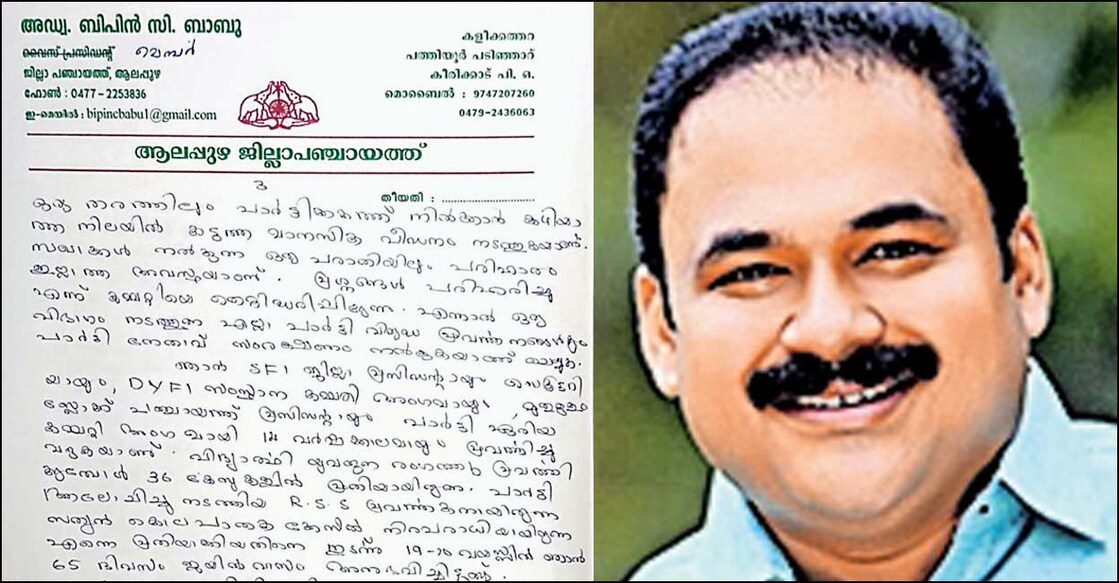 അഡ്വ. ബിപിൻ സി. ബാബു
വൈസ് പ്രസിഡന്റ് മെമ്പർ
ജില്ലാ പഞ്ചായത്ത്, ആലപ്പുഴ
ഫോൺ : 0477 - 2253836
ഇ-മെയിൽ : bipincbabu1@gmail.com
കളീക്കത്തറ
പത്തിയൂർ പടിഞ്ഞാറ്
കീരിക്കാട് പി. ഒ.
മൊബൈൽ : 9747207260
0479-2436063
ആലപ്പുഴ ജില്ലാപഞ്ചായത്ത്
3
തീയതി : ........................
ഒരു തരത്തിലും പാർട്ടിക്കകത്ത് നിൽക്കാൻ കഴിയാ
ത്ത നിലയിൽ കടുത്ത മാനസിക പീഡനം നടത്തുകയാണ്.
സഖാക്കൾ നൽകുന്ന ഒരു പരാതിയിലും പരിഹാരം
ഇല്ലാത്ത അവസ്ഥയാണ്. പ്രശ്നങ്ങൾ പരിഹരിച്ചു
എന്ന് കമ്മറ്റിയെ തെറ്റിദ്ധരിപ്പിക്കുന്നു. എന്നാൽ ഒരു
വിഭാഗം നടത്തുന്ന എല്ലാ പാർട്ടി വിരുദ്ധ പ്രവർത്തനങ്ങൾക്കും
പാർട്ടി നേതാവ് സംരക്ഷണം നൽകുകയാണ് ചെയ്തത്.
ഞാൻ SFI ജില്ലാ പ്രസിഡന്റായും സെക്രട്ടറി
യായും, DYFI സംസ്ഥാന കമ്മതി അംഗമായും,
ബ്ലോക്ക് പഞ്ചായത്ത് പ്രസിഡന്റായും പാർട്ടി ഏരിയ
കമ്മറ്റി അംഗമായി 14 വർഷക്കാലമായും പ്രവർത്തിച്ചു
വരുകയാണ്. വിദ്യാർത്ഥി യുവജന രംഗത്തു പ്രവർത്തി
ക്കുമ്പോൾ 36 കേസുകളിൽ പ്രതിയായിരുന്നു. പാർട്ടി
ആലോചിച്ചു നടത്തിയ R.S.S പ്രവർത്തകനായിരുന്ന
സത്യൻ കൊലപാതക കേസിൽ നിരപരാധിയായിരുന്ന
എന്നെ പ്രതിയാക്കിയതിനെ തുടർന്ന് 19-20 വയസ്സിൽ ഞാൻ
65 ദിവസം ജയിൽവാസം അനുഭവിച്ചിട്ടുണ്ട്.